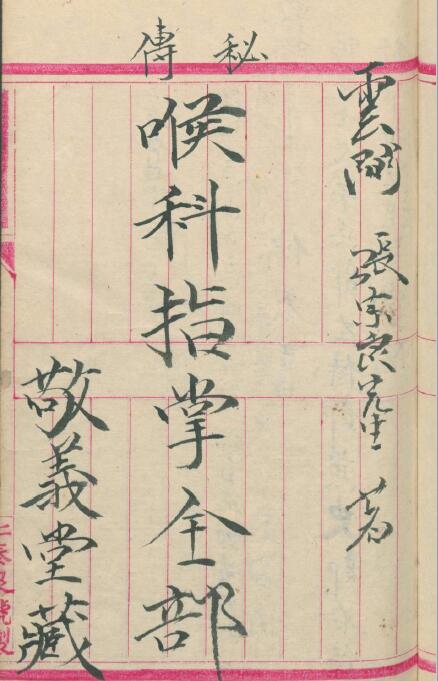 秘傳
雲間 張宗良先生 著
喉科指掌全部
敬義堂藏